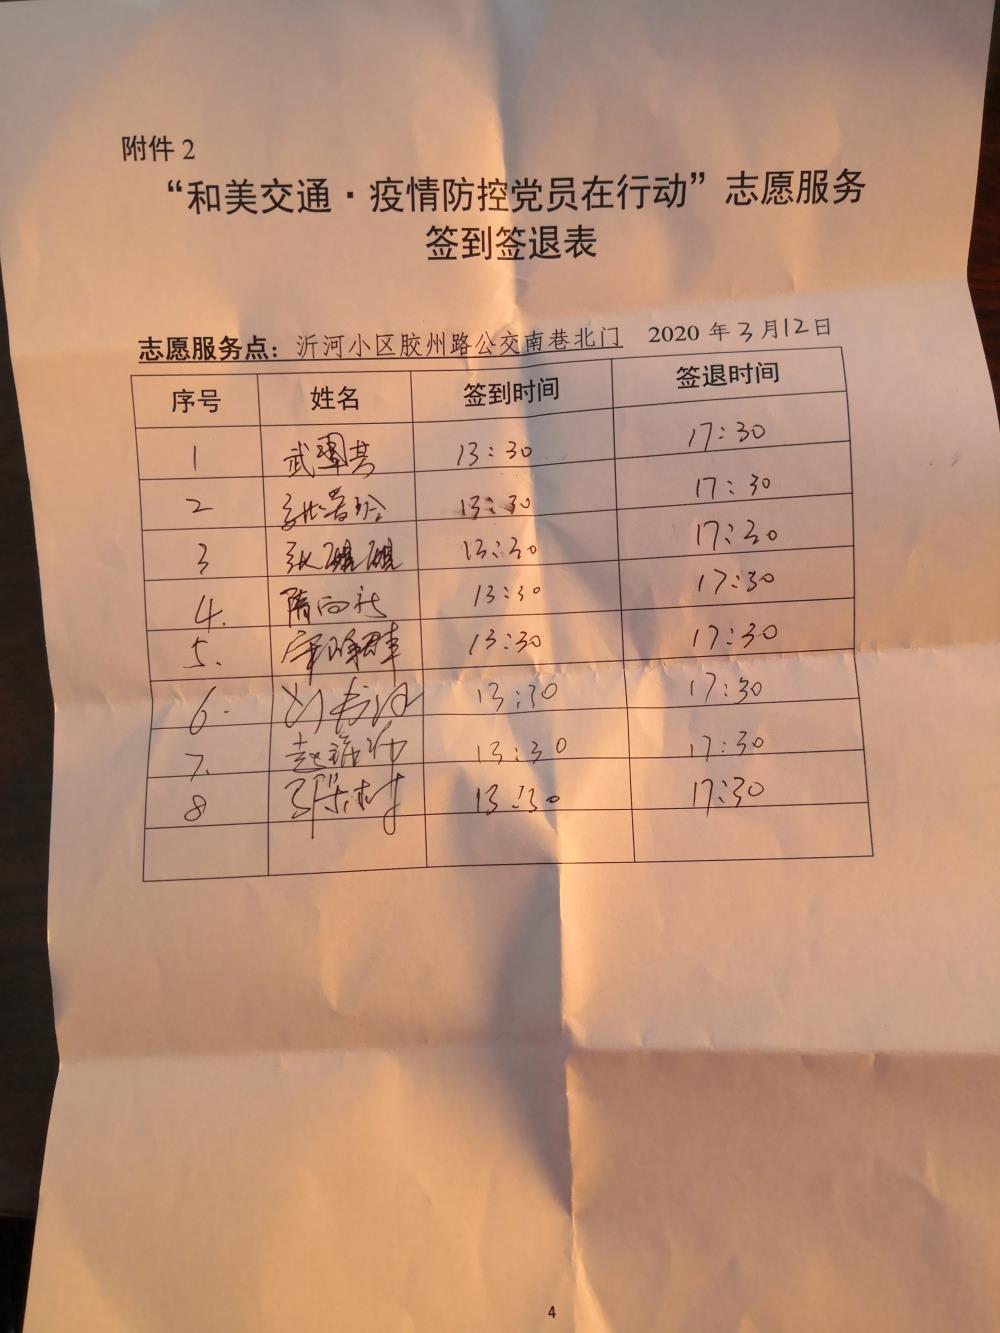 附件 2
“和美交通·疫情防控党员在行动”志愿服务
签到签退表
志愿服务点：沂河小区胶州路公交南巷北门 2020 年 3 月 12 日
序号 姓名 签到时间 签退时间
1 武 13:30 17:30
2 张 13:30 17:30
3 张 13:30 17:30
4. 隋向 13:30 17:30
5. 13:30 17:30
6. 刘 13:30 17:30
7. 赵 13:30 17:30
8 13:30 17:30
4